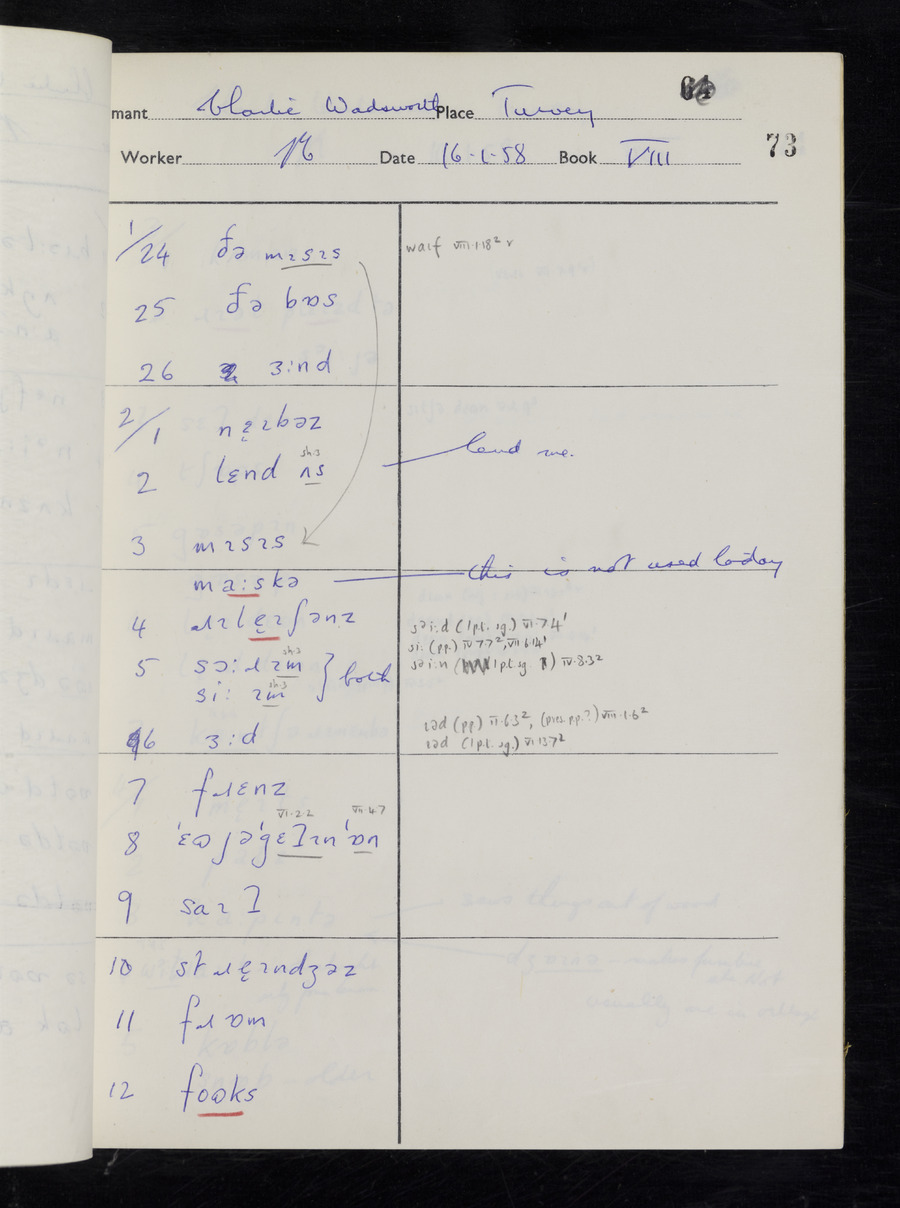 mant Charlie Wadsworth Place Turvey
73
Worker Date 16.1.58 Book VIII
1/24 ðə mɪsɪs
waif VIII.1.18² v
25 ðə bɒs
26 ɜ:nd
2/1 nɛ̝ɪbəz
2 lɛnd ʌs
sh.s
lend me.
3 mɪsɪs
ma:skə
this is not used today
4 ɹɪlɛ̝ɪʃənz
sɔi:d (1 pt. sg.) VI.7.4¹
si: (pp.) IV.7.7², VII.6.14¹
5 sɔ:ɹ ɪm
sh.s
sɔi:n (1 pt. sg.) IV.8.3²
si: ɪm
sh.s
both
6 ɜ:d
ɪəd (pp) II.6.3², (pres pp.?) VIII.1.6²
ɪəd (1 pt. sg.) VI.13.7²
7 fɹɛnz
VI.2.2 VII.4.7
8 ˈɛɷ jəˈgɛʔɪnˈɒn
9 saɪʔ
10 stɹɛ̝ɪndʒəz
11 fɹɒm
12 foɷks